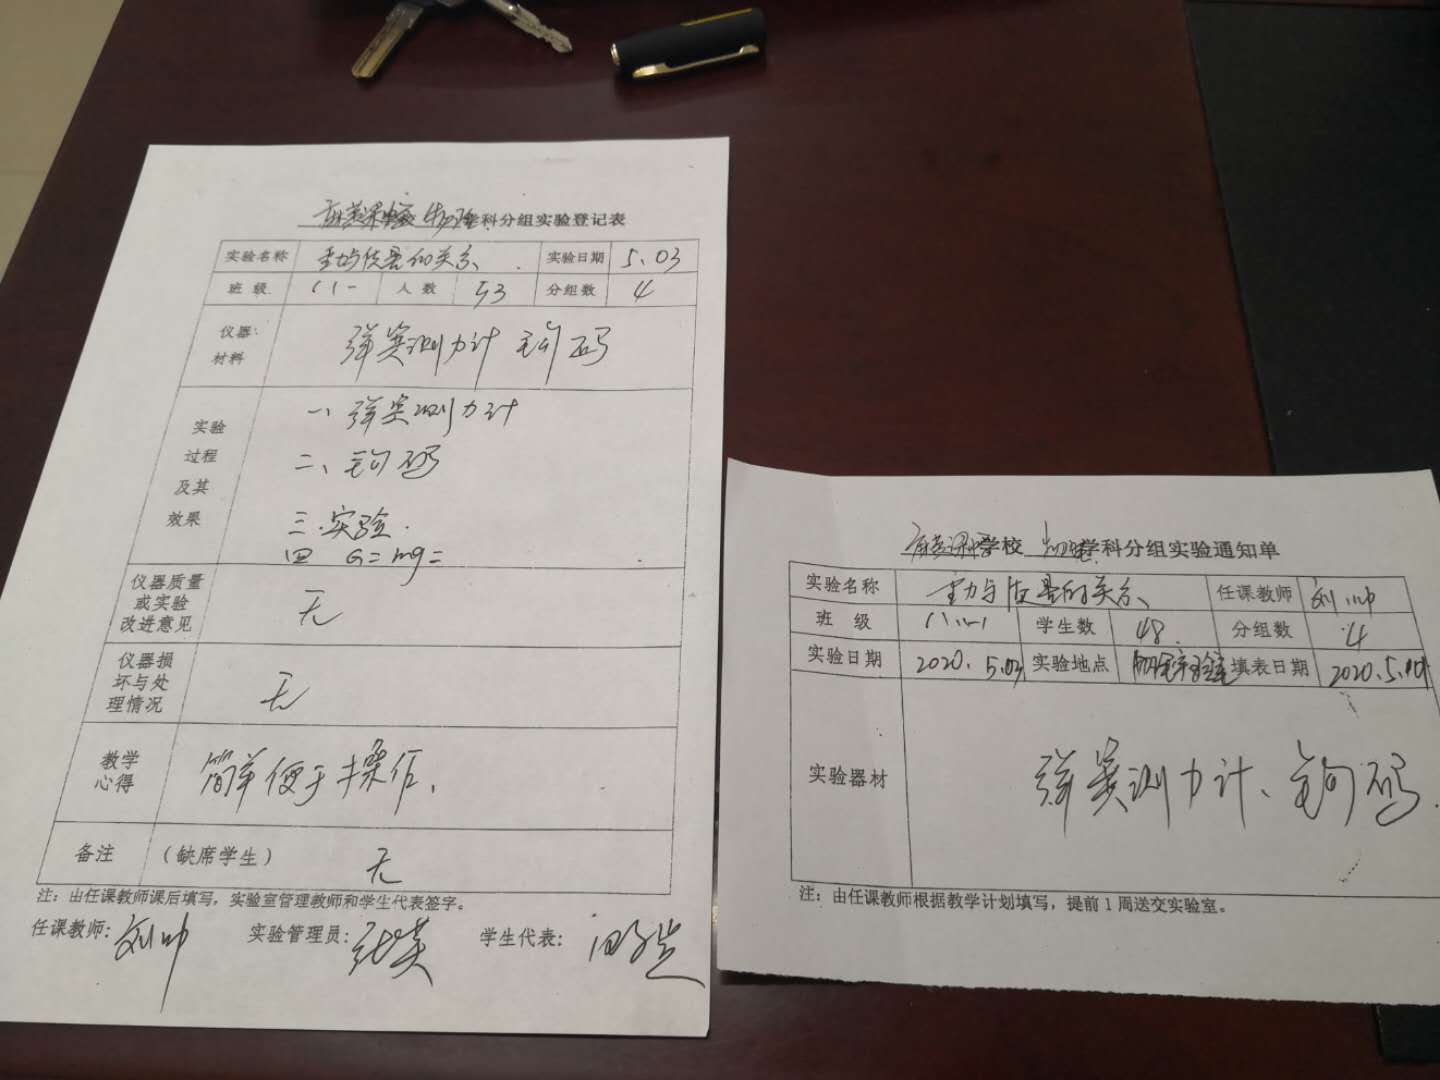 科分组实验登记表
实验名称 重力与质量的关系 实验日期 5.03
班级 八一 人数 53 分组数 4
仪器:
材料
弹簧测力计 钩码
实验
过程
及其
效果
一、弹簧测力计
二、钩码
三.实验.
四 G=mg=
仪器质量
或实验
改进意见
无
仪器损
坏与处
理情况
无
教学
心得
简单便于操作.
备注 (缺席学生) 无
注:由任课教师课后填写,实验室管理教师和学生代表签字。
任课教师: 刘帅 实验管理员: 张英 学生代表:
学校 物理学科分组实验通知单
实验名称 重力与质量的关系 任课教师 刘帅
班级 八.一 学生数 48. 分组数 4
实验日期 2020.5.03 实验地点 填表日期 2020.5.
实验器材 弹簧测力计、钩码.
注:由任课教师根据教学计划填写,提前1周送交实验室。